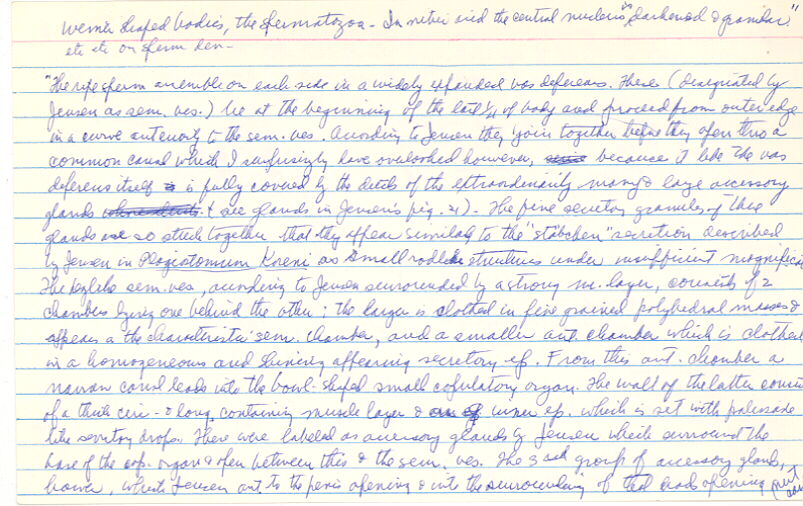 worm shaped bodies, the spermatozoa - In nebei sind the central nucleus "darkened & granular"
etc etc on sperm dev-
"The ripe sperm assemble on each side in a widely expanded vas deferens. These (designated by
Jensen as sem. ves.) lie at the beginning of the last 1/4 of body and proceed from outer edge
in a curve anteriorly to the sem. ves. According to Jensen they join together before they open thro a
common canal which I surprisingly have overlooked however, because it like the vas
deferens itself is fully covered by the ducts of the extraordinarily many & large accessory
glands (see glands in Jensen's fig. 21). The fine secretory granules of these
glands are so stuck together that they appear similar to the "stäbchen" secretion described
by Jensen in Plagiostomum Koreni as small rodlike structures under insufficient magnific
The sem. ves, according to Jensen surrounded by a strong m. layer, consists of 2
chambers lying one behind the other; the larger is clothed in fine grained polyhedral masses &
appears as the characteristic sem. chamber, and a smaller ant. chamber which is clothed
in a homogeneous and shining appearing secretory ep. From this ant. chamber a
narrow canal leads into the bowl-shaped small copulatory organ. The wall of the latter consists
of a thick circ- & long. containing muscle layer & inner ep. which is set with palisade
like secretory drops. There were labeled as accessory glands by Jensen which surround the
base of the cop. organ & open between this & the sem. ves. The group of accessory glands,
however, which Jensen ant. to the penis opening & into the surrounding of that opening